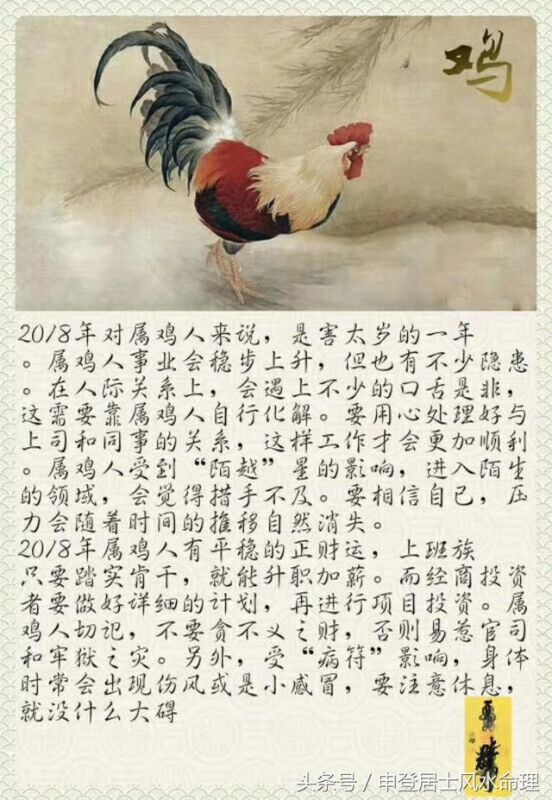 鸡
2018年对属鸡人来说，是害太岁的一年
。属鸡人事业会稳步上升，但也有不少隐患
。在人际关系上，会遇上不少的口舌是非，
这需要靠属鸡人自行化解。要用心处理好与
上司和同事的关系，这样工作才会更加顺利
。属鸡人受到“陌越”星的影响，进入陌生
的领域，会觉得措手不及。要相信自己，压
力会随着时间的推移自然消失。
2018年属鸡人有平稳的正财运，上班族
只要踏实肯干，就能升职加薪。而经商投资
者要做好详细的计划，再进行项目投资。属
鸡人切记，不要贪不义之财，否则易惹官司
和牢狱之灾。另外，受“病符”影响，身体
时常会出现伤风或是小感冒，要注意休息，
就没什么大碍
头条号／申登居士风水命理